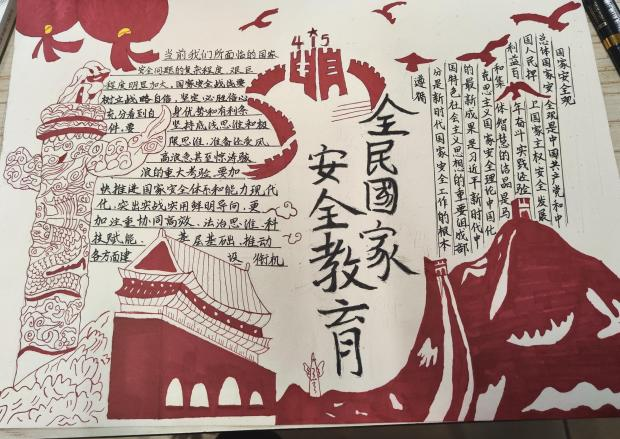 当前我们所面临的国家
安全问题的复杂程度、艰巨
程度明显加大，国家安全战线要
树立战略自信、坚定必胜信心
充分看到自身优势和有利条
件，要坚持底线思维和极
限思维，准备经受风
高浪急甚至惊涛骇
浪的重大考验，要加
快推进国家安全体系和能力现代
化，突出实战实用鲜明导向，更
加注重协同高效、法治思维、科
技赋能、基层基础，推动
各方面建设衔机
4 15
全民國家
安全教育
国家安全观
总体国家安全观是中国共产党和中
国人民捍卫国家主权安全发展
利益百年奋斗实践经验
和集体智慧的结晶是马
克思主义国家安全理论中国化
的最新成果是习近平新时代中
国特色社会主义思想的重要组成部
分是新时代国家安全工作的根本
遵循